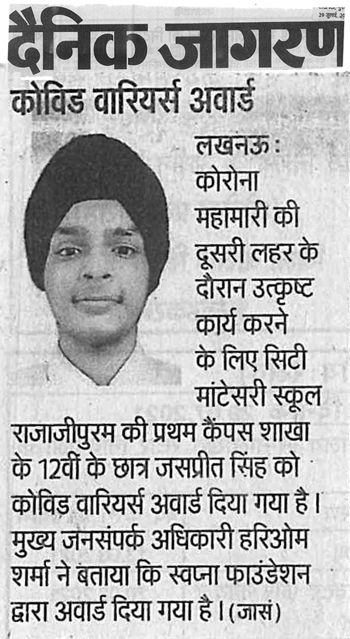 दैनिक जागरण
कोविड वारियर्स अवार्ड
लखनऊ :
कोरोना
महामारी की
दूसरी लहर के
दौरान उत्कृष्ट
कार्य करने
के लिए सिटी
मांटेसरी स्कूल
राजाजीपुरम की प्रथम कैंपस शाखा
के 12वीं के छात्र जसप्रीत सिंह को
कोविड वारियर्स अवार्ड दिया गया है।
मुख्य जनसंपर्क अधिकारी हरिओम
शर्मा ने बताया कि स्वप्ना फाउंडेशन
द्वारा अवार्ड दिया गया है। (जासं)